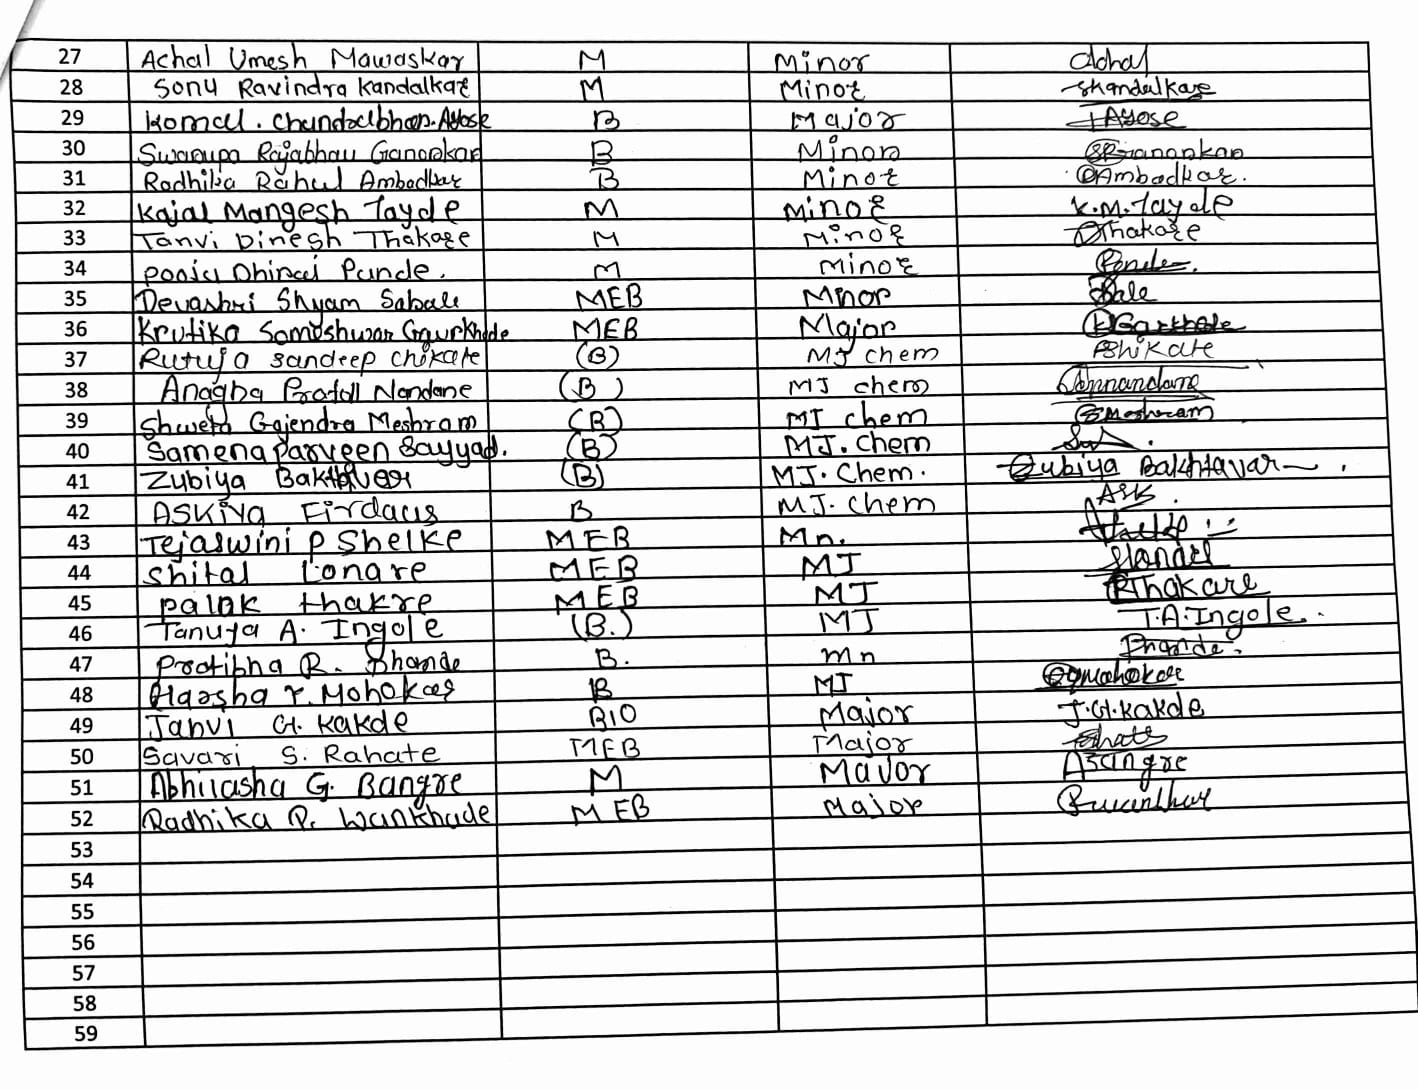 27 Achal Umesh Mawaskar M Minor Achal
28 Sonu Ravindra Kandalkar M Minor Skandalkar
29 Komal. Chandrabhan. Ayose B Major Ayose
30 Swarupa Rajabhau Ganorkar B Minor Ganorkar
31 Radhika Rahul Ambadkar B Minor Ambadkar.
32 Kajal Mangesh Tayde M Minor K.M.Tayde
33 Tanvi Dinesh Thakare M Minor Thakare
34 Pooja Dhiraj Pande. M Minor
35 Devashri Shyam Sabale MEB Minor
36 Krutika Someshwar Gaurkhede MEB Major
37 Rutuja Sandeep Chikate (B) MJ chem
38 Anagha Prafull Nandane (B) MJ chem
39 Shweta Gajendra Meshram (B) MJ chem Meshram
40 Samena Parveen Sayyad. (B) MJ. Chem
41 Zubiya Bakhtavar (B) MJ. Chem. Zubiya Bakhtavar
42 ASKIYA Firdaus B MJ. Chem Ask
43 Tejaswini P Shelke MEB Mn.
44 Shital Lonare MEB MJ
45 palak thakre MEB MJ Thakare
46 Tanuja A. Ingole (B.) MJ T.A.Ingole.
47 Pratibha R. Dhande B. mn
48 Harsha Y. Mohokar B MJ
49 Janvi G. Kakde BIO Major J.G.Kakde
50 Savari S. Rahate MEB Major
51 Abhilasha G. Bangre M Major ABangre
52 Radhika P. Wankhade MEB Major
53
54
55
56
57
58
59